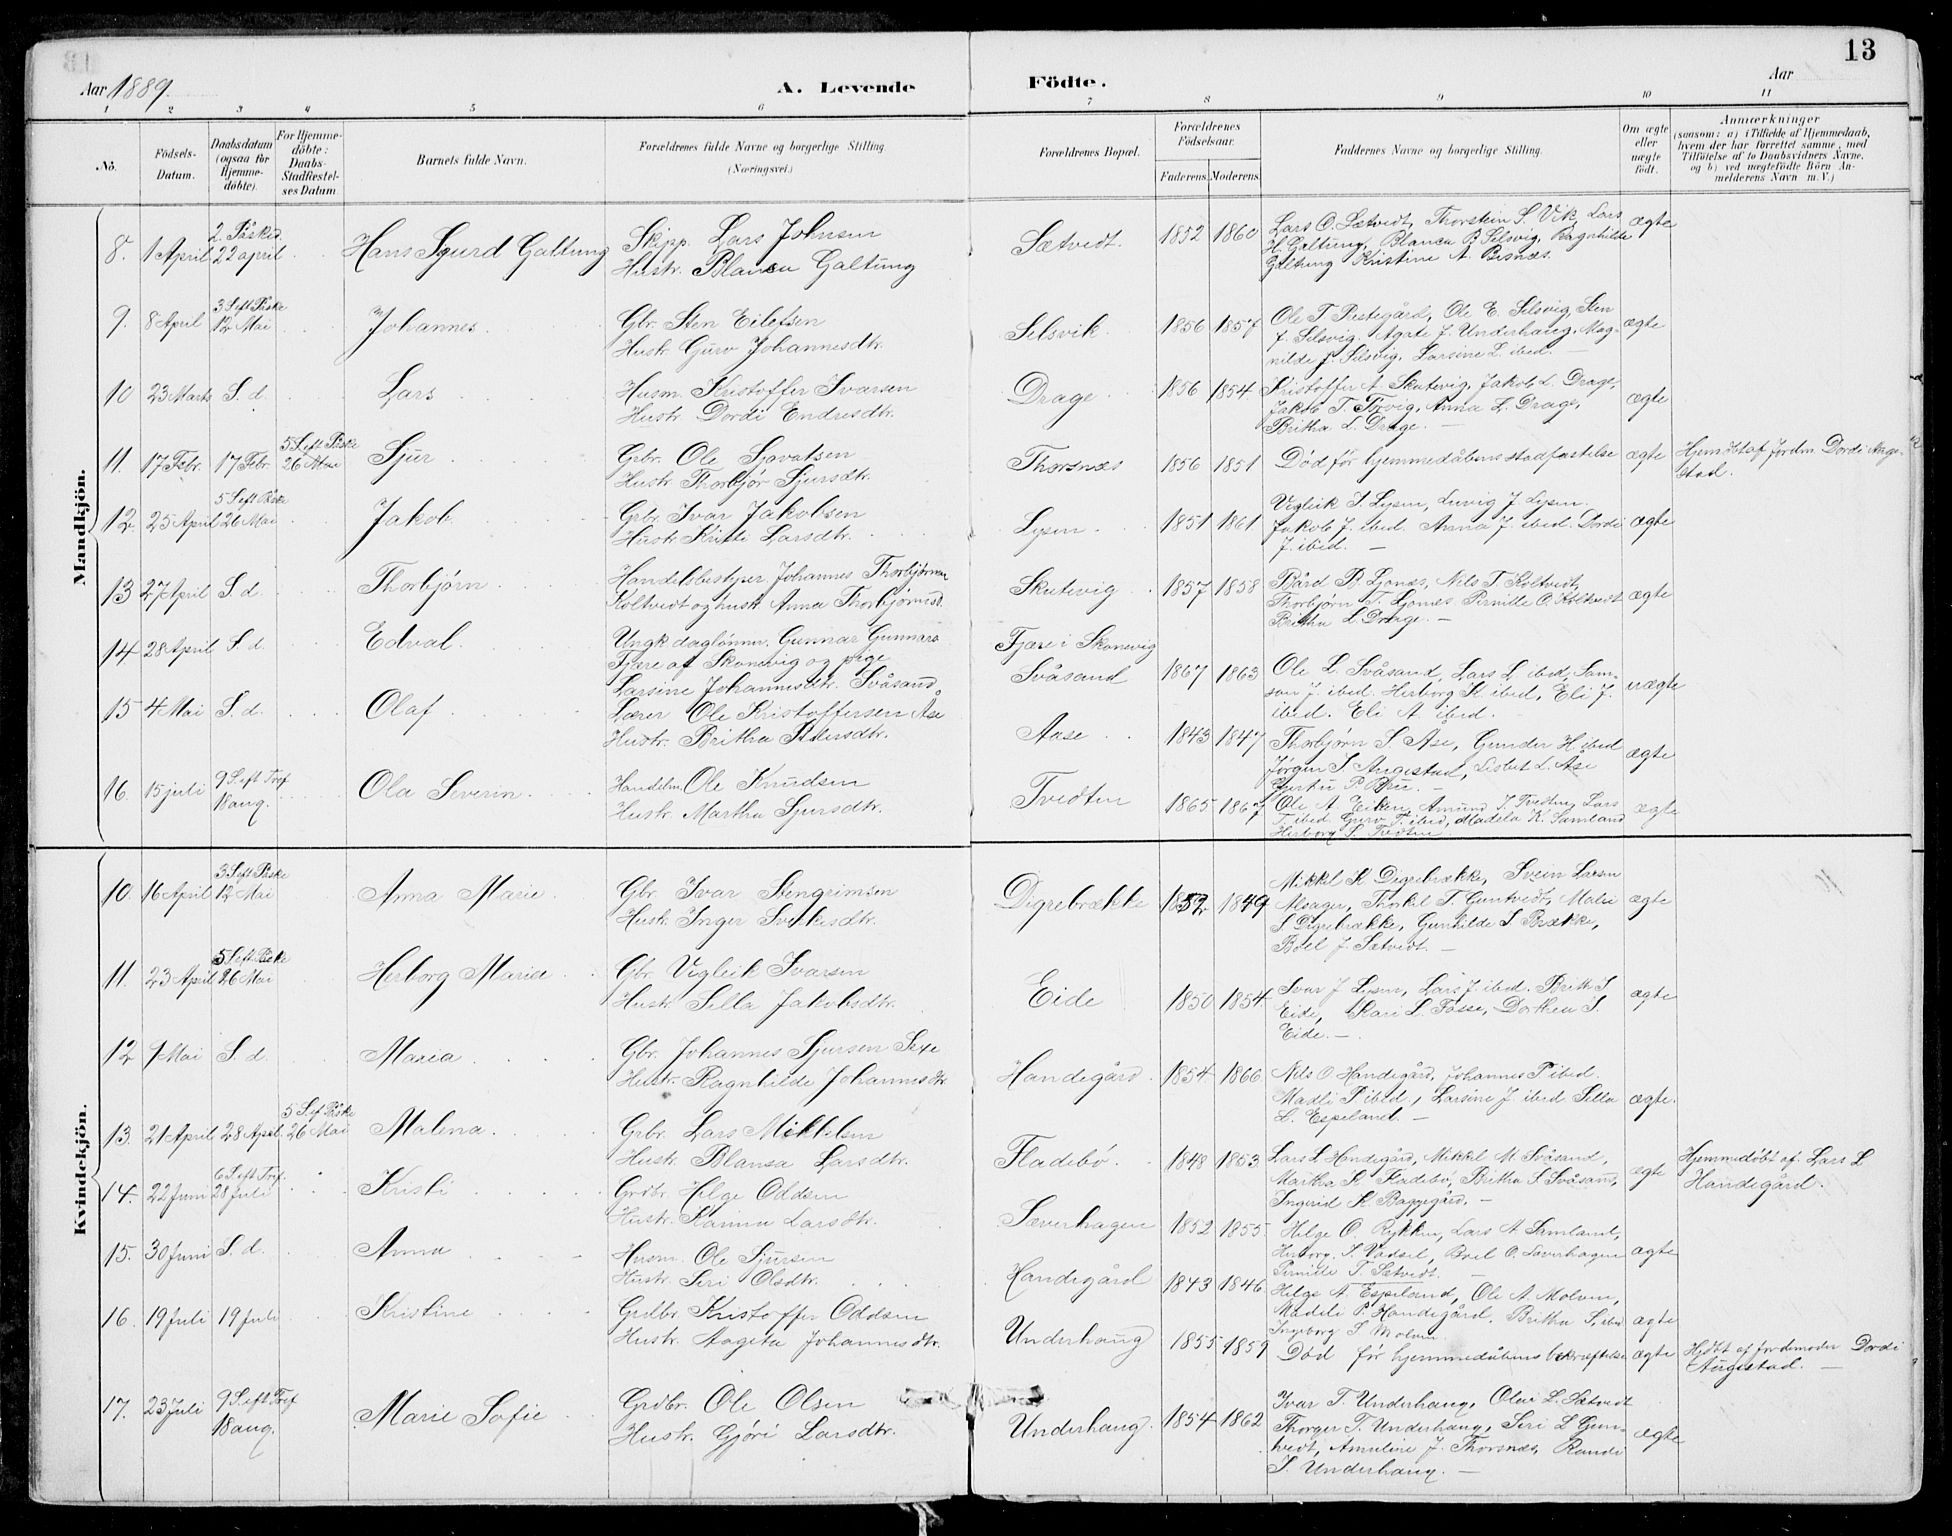 13
Aar 1889. A. Levende Födte. Aar
1 2 3 4 5 6 7 8 9 10 11
No.
Födsels-Datum.
Daabsdatum (ogsaa for Hjemmedöbte).
For Hjemmedöbte: Daabs-Stadfæstelses Datum.
Barnets fulde Navn.
Forældrenes fulde Navne og borgerlige Stilling.
(Næringsvei.)
Forældrenes Bopæl.
Forældrenes Födselsaar.
Faderens. Moderens.
Faddernes Navne og borgerlige Stilling.
Om ægte eller uægte födt.
Anmærkninger
(saasom: a) i Tilfælde af Hjemmedaab, hvem der har forrettet samme, med Tilföielse af to Daabsvidners Navne, og b) ved uægtefödte Börn Anmelderens Navn m. V.)
Mandkjön.
8. 1 April 2. Påsked. 22 april Hans Sjurd Galtung Skipp. Lars Johnsen
Hustr. Blansa Galtung
Sætvedt. 1852 1860 Lars O. Sætvedt, Thorstein S. Vik, Lars
H. Galtung, Blanca B. Selsvig, Ragnhilde
Galtung Kristine A. Besnæs. ægte
9. 8 April 3 S. eft Påske 12 Mai Johannes. Gbr. Sten Eilefsen
Hustr. Guro Johannesdtr.
Selsvik. 1856 1857 Ole T. Prestegård, Ole E. Selsvig, Sten
J. Selsvig, Agate J. Underhaug, Mag-
nilde J. Selsvig, Larsine L. ibid. — ægte
10 23 Marts S. d. Lars Husm. Kristoffer Ivarsen
Hustr. Dordi Endresdtr.
Drage. 1856 1854 Kristoffer A. Skutevig, Jakob L. Drage,
Jakob T. Torvig, Anna L. Drage,
Britha L. Drage. — ægte
11. 17 Febr. 17 Febr. 5 S. eft Påske 26 Mai Sjur Grbr. Ole Sjovatsen
Hustr. Thorbjør Sjursdtr.
Thorsnæs 1856 1851 Død før hjemmedåbens stadfæstelse ægte Hjemdöbt af Jordm. Dordi Auge-
stad.
12. 25 April 5 S eft Påske 26 Mai Jakob Grbr. Ivar Jakobsen
Hustr. Kristi Larsdtr.
Lysen. 1851 1861 Vigleik I. Lysen, Luvig J. Lysen.
Jakob J. ibid. Anna J. ibid. Dordi
J. ibid. — ægte
13 27 April S. d. Thorbjørn Handelsbestyrer Johannes Thorbjørnsen
Koltvedt og hustr. Anna Thorbjørnsd.
Skutevig 1857 1858 Bård B. Ljonæs, Nils T. Koltvedt,
Thorbjørn T. Ljonæs Pernille O. Koltvedt
Britha L. Drage. — ægte
14 28 April S. d. Edval. Ungk. daglønner. Gunnar Gunnars
Fjære af Skonevig og pige
Larsine Johannesdtr. Svåsand
Fjære i Skonevig
Svåsand 1867 1863 Ole L. Svåsand, Lars L. ibid, Sam-
son J. ibid. Herborg K. ibid, Eli J.
ibid. Eli A. ibid. — uægte
15 4 Mai S. d. Olaf Lærer Ole Kristoffersen Åse
Hustr. Britha Petersdtr.
Aase 1843 1847 Thorbjørn S. Åse, Gunder H. ibid
Jørgen S. Augestad, Lisbet L. Åse
ægte
16. 15 juli 9 S. eft Tref 18 aug. Ola Severin. Handelm. Ole Knudsen
Hustr. Martha Sjursdtr.
Tvedten 1865 1867 Ole A. Eiken, Amund T. Tvedten, Lars
T. ibid. Guro T. ibid, Madela K. Samland
Herborg S. Tvedten ægte
Kvindekjön.
10. 16 April 3 S eft Påske 12 Mai Anna Marie. Gbr. Ivar Stengrimsen
Hustr. Inger Sverkesdtr.
Digrebrække 1852 1849 Mikkel K. Digrebrække, Svein Larsen
Alsager, Thorkil T. Guntvedt, Malvi
S. Digrebrække, Gunhilde S. Brække,
Boel J. Sætvedt. — ægte
11. 23 April 5 S eft Påske 26 Mai Herborg Marie Gbr. Vigleik Ivarsen
Hustr. Sella Jakobsdtr.
Eide 1850 1854 Ivar J. Lysen, Lars J. ibid. Brith S
Eide, Kari L. Fosse, Dorthea S.
Eide. — ægte
12 1 Mai S. d. Maria Gbr. Johannes Sjursen Sexe
Hustr. Ragnhilde Johannesdtr
Handegård. 1854 1866 Nils O Handegård, Johannes P ibid.
Madli P ibid, Larsine J. ibid Sella
L. Espeland. — ægte.
13. 21 April 28 April. 5 S. ef Påske 26 Mai Malena. Grbr. Lars Mikkelsen
Hustr. Blansa Larsdtr.
Fladebø. 1848 1853 Lars L. Handegård, Mikkel M. Svåsand,
Martha K. Fladebø, Britha S. Svåsand,
Ingerid K. Baggegård. — ægte Hjemmedöbt af Lars L
Handegård.
14. 22 Juni 6 S. eft Tref. 28 Juli Kristi Grdbr. Helge Oddsen
Hustr. Larsdtr.
Sæverhagen 1852 1855. Helge O. Rykken, Lars A. Samland,
Herborg S. Vadsel, Boel O. Sæverhagen
Pernille T. Sætvedt. — ægte
15. 30 Juni S. d. Anna Husm. Ole Sjursen
Hustr. Seri Olsdtr.
Handegård 1843 1846 Helge A. Espeland, Ole A. Molven,
Madeli P. Handegård, Britha S. ibid
Ingeborg S. Molven. ægte
16. 19 Juli 19 Juli Kristine Grdbr. Kristoffer Oddsen
Hustr. Aageta Johannesdtr.
Underhaug 1855 1859 Død før hjemmedåbens bekræftelse ægte Hjdbt af jordemoder Dordi
Augestad. —
17. 23 Juli 9 S. eft Tref 18 aug. Marie Sofie Grdbr. Ole Olsen
Hustr. Gjöri Larsdtr.
Underhaug. 1854 1862 Ivar T. Underhaug, Olai L. Sætvedt
Thorger T. Underhaug, Seri L Gun-
tvedt, Amuline J. Thorsnæs, Randi
S. Underhaug. — ægte